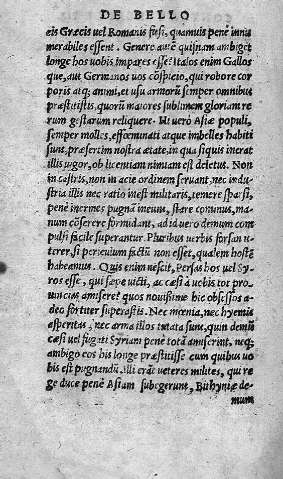 DE BELLO
eis Græcis uel Romanis fusi, quamuis penè innu
merabiles essent. Genere autē quisnam ambiget
longe hos uobis impares esse? Italos enim Gallos
que, aut Germanos uos cōspicio, qui robore cor
poris atq; animi, et usu armorū semper omnibus
præstitistis, quorū maiores sublimem gloriam re
rum gestarum reliquere. Hi uerò Asiæ populi,
semper molles, effœminati atque imbelles habiti
sunt, præsertim nostra ætate, in qua siquis inerat
illis uigor, ob licentiam nimiam est deletus. Non
in castris, non in acie ordinem seruant, nec indu-
stria illis nec ratio inest militaris, temere sparsi,
penè inermes pugnā ineunt, stare cominus, ma-
num cōserere formidant, ad id uero demum com
pulsi facile superantur. Pluribus uerbis forsan u
terer, si periculum factū non esset, qualem hostē
habeamus. Quis enim nescit, Persas hos uel Sy-
ros esse, qui sæpe uicti, ac cæsi à uobis tot pro
uincias amiseret quos nouissime hic obsessos a-
deo fortiter superastis. Nec mœnia, nec hyemis
asperitas, nec arma illos tutata sunt, quin demū
cæsi uel fugati Syriam penè totā amiserint, neq;
ambigo eos his longe præstitisse cum quibus uo
bis est pugnandū. illi erāt ueteres milites, qui re
ge duce penè Asiam subegerunt, Bithyniæ de-
mum